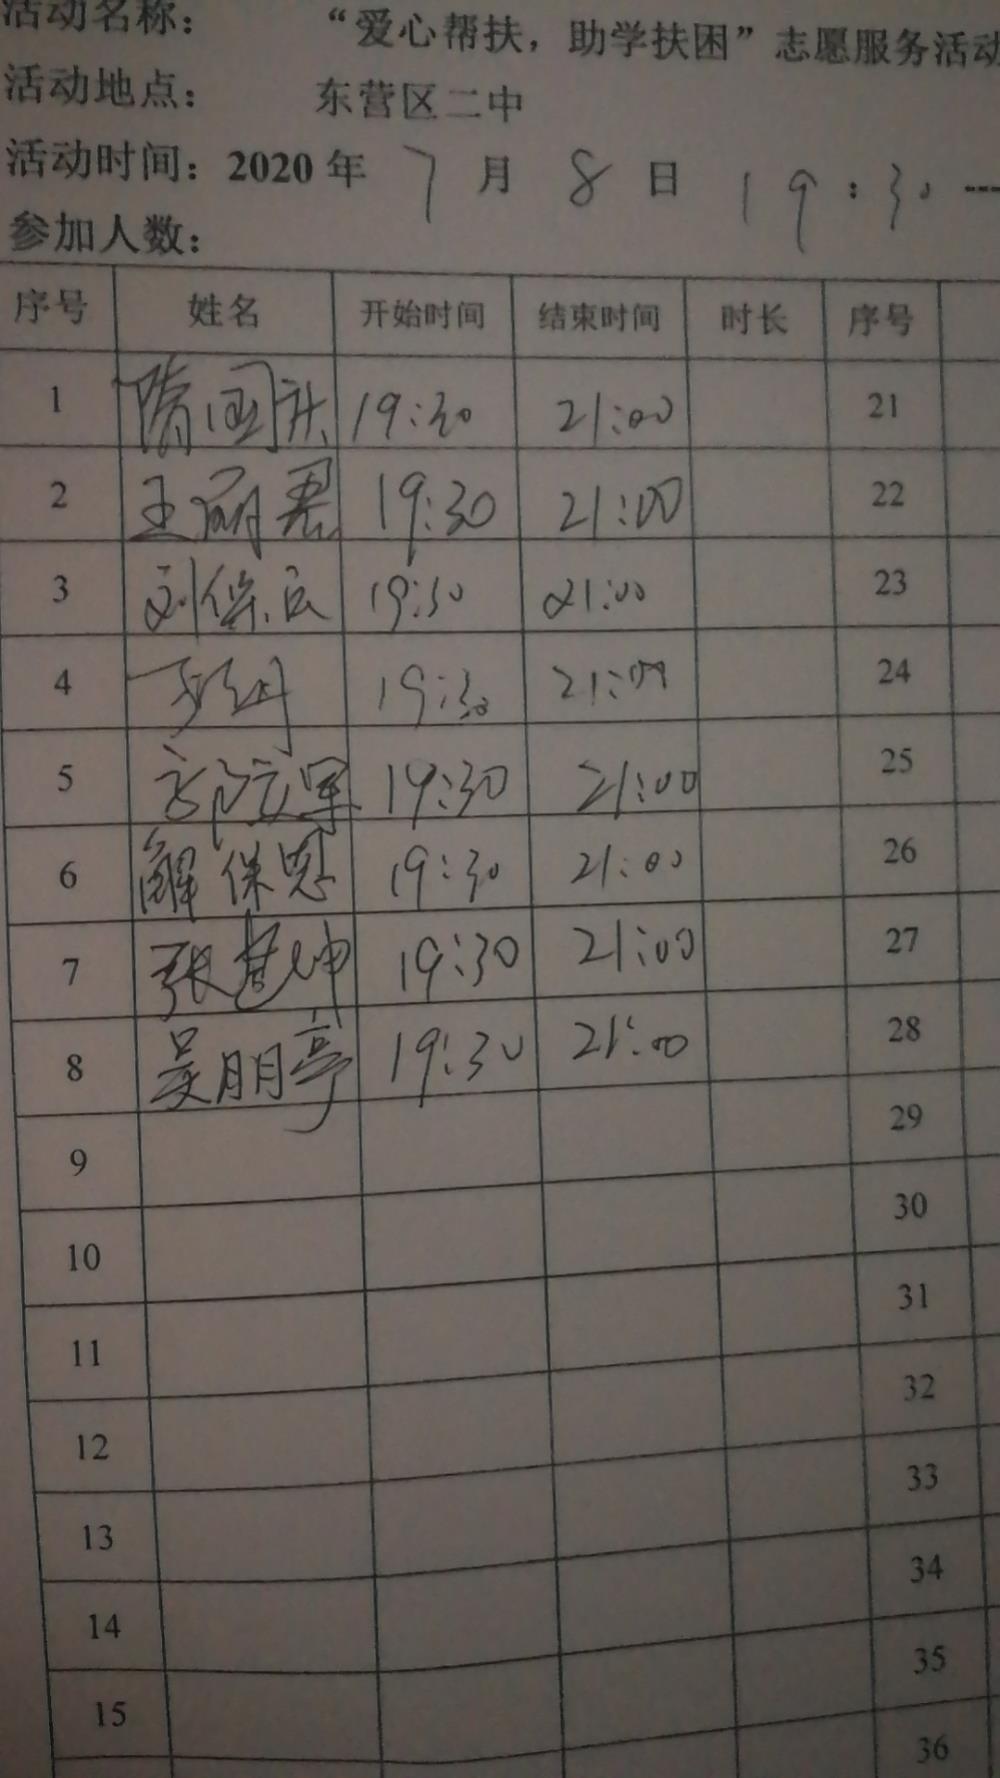 活动名称： “爱心帮扶，助学扶困”志愿服务活动
活动地点： 东营区二中
活动时间：2020年 7 月 8 日 19:30---
参加人数：
序号 姓名 开始时间 结束时间 时长 序号
1 隋国庆 19:30 21:00 21
2 王丽君 19:30 21:00 22
3 刘保兵 19:30 21:00 23
4 19:30 21:00 24
5 19:30 21:00 25
6 解保恩 19:30 21:00 26
7 张慧坤 19:30 21:00 27
8 吴朋亭 19:30 21:00 28
9 29
10 30
11 31
12 32
13 33
14 34
15 35
36